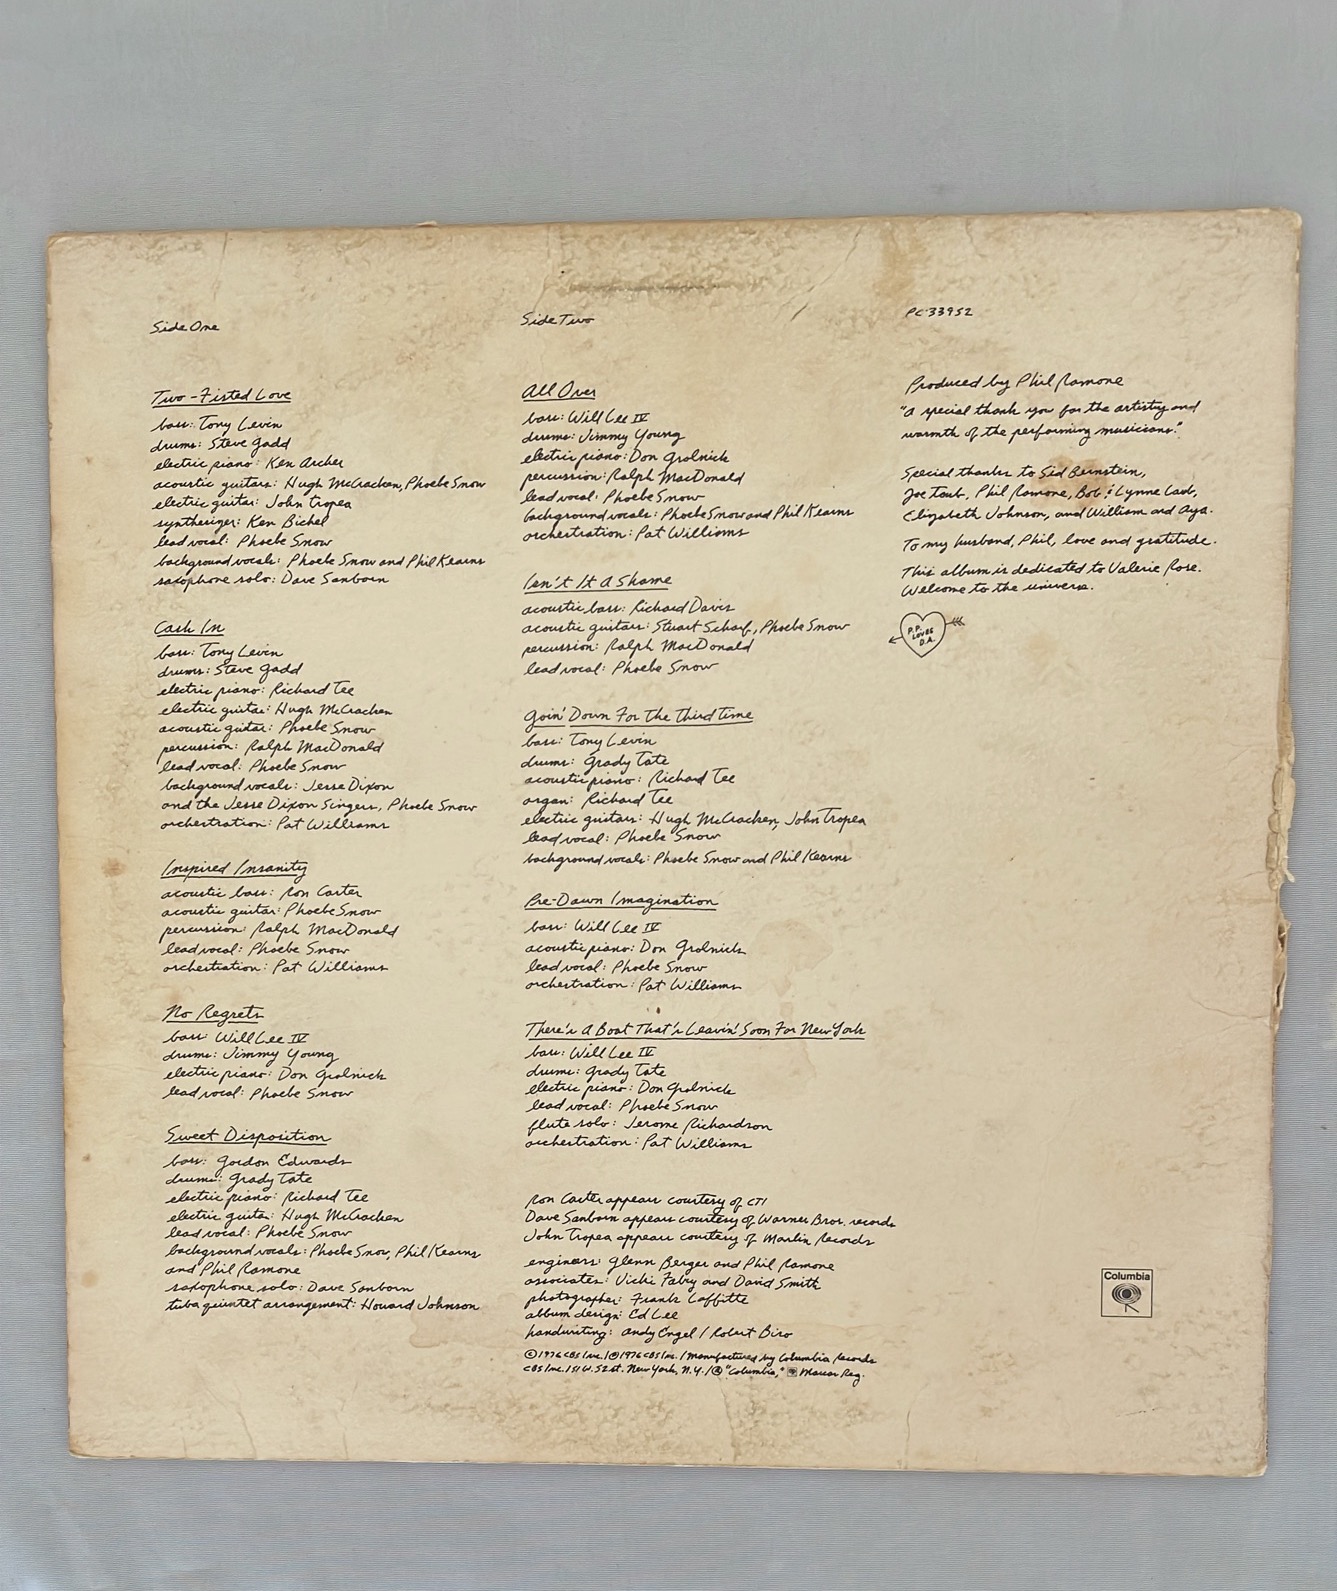 Side One
Two-Fisted Love
bass: Tony Levin
drums: Steve Gadd
electric piano: Ken Ascher
acoustic guitars: Hugh McCracken, Phoebe Snow
electric guitar: John Tropea
synthesizer: Ken Bichel
lead vocal: Phoebe Snow
background vocals: Phoebe Snow and Phil Kearns
saxophone solo: Dave Sanborn
Cash In
bass: Tony Levin
drums: Steve Gadd
electric piano: Richard Tee
electric guitar: Hugh McCracken
acoustic guitar: Phoebe Snow
percussion: Ralph MacDonald
lead vocal: Phoebe Snow
background vocals: Jesse Dixon
and the Jesse Dixon Singers, Phoebe Snow
orchestration: Pat Williams
Inspired Insanity
acoustic bass: Ron Carter
acoustic guitar: Phoebe Snow
percussion: Ralph MacDonald
lead vocal: Phoebe Snow
orchestration: Pat Williams
No Regrets
bass: Will Lee IV
drums: Jimmy Young
electric piano: Don Grolnick
lead vocal: Phoebe Snow
Sweet Disposition
bass: Gordon Edwards
drums: Grady Tate
electric piano: Richard Tee
electric guitar: Hugh McCracken
lead vocal: Phoebe Snow
background vocals: Phoebe Snow, Phil Kearns
and Phil Ramone
saxophone solo: Dave Sanborn
tuba quintet arrangement: Howard Johnson
Side Two
All Over
bass: Will Lee IV
drums: Jimmy Young
electric piano: Don Grolnick
percussion: Ralph MacDonald
lead vocal: Phoebe Snow
background vocals: Phoebe Snow and Phil Kearns
orchestration: Pat Williams
Isn't It A Shame
acoustic bass: Richard Davis
acoustic guitars: Stuart Scharf, Phoebe Snow
percussion: Ralph MacDonald
lead vocal: Phoebe Snow
Goin' Down For The Third Time
bass: Tony Levin
drums: Grady Tate
acoustic piano: Richard Tee
organ: Richard Tee
electric guitars: Hugh McCracken, John Tropea
lead vocal: Phoebe Snow
background vocals: Phoebe Snow and Phil Kearns
Pre-Dawn Imagination
bass: Will Lee IV
acoustic piano: Don Grolnick
lead vocal: Phoebe Snow
orchestration: Pat Williams
There's A Boat That's Leavin' Soon For New York
bass: Will Lee IV
drums: Grady Tate
electric piano: Don Grolnick
lead vocal: Phoebe Snow
flute solo: Jerome Richardson
orchestration: Pat Williams
Ron Carter appears courtesy of CTI
Dave Sanborn appears courtesy of Warner Bros. records
John Tropea appears courtesy of Marlin Records
engineers: Glenn Berger and Phil Ramone
associates: Vicki Fabry and David Smith
photographer: Frank Laffitte
album design: Ed Lee
handwriting: Andy Engel / Robert Biro
© 1976 CBS Inc./ ℗ 1976 CBS Inc. / Manufactured by Columbia Records
CBS Inc. / 51 W. 52 st. New York, N.Y. / ® "Columbia," Marcas Reg.
PC 33952
Produced by Phil Ramone
"a special thank you for the artistry and
warmth of the performing musicians."
Special thanks to Sid Bernstein,
Joe Taub, Phil Ramone, Bob & Lynne
Elizabeth Johnson, and William and Aya.
To my husband, Phil, love and gratitude.
This album is dedicated to Valerie Rose.
Welcome to the universe.
P.P.
LOVES
D.A.
Columbia